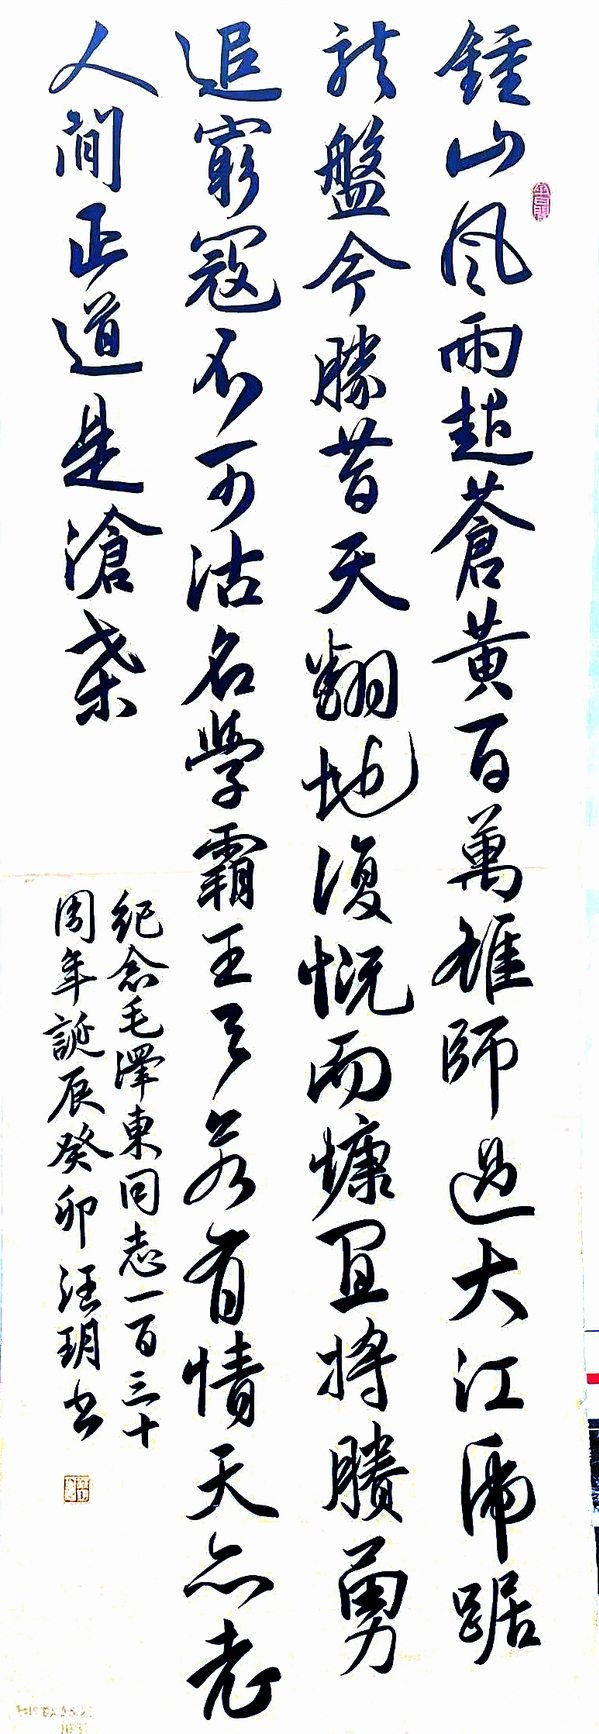 鍾山風雨起蒼黃百萬雄師過大江虎踞
龍盤今勝昔天翻地復慨而慷宜將賸勇
追窮寇不可沽名學霸王天若有情天亦老
人間正道是滄桑
紀念毛澤東同志一百三十
周年誕辰癸卯汪玥书